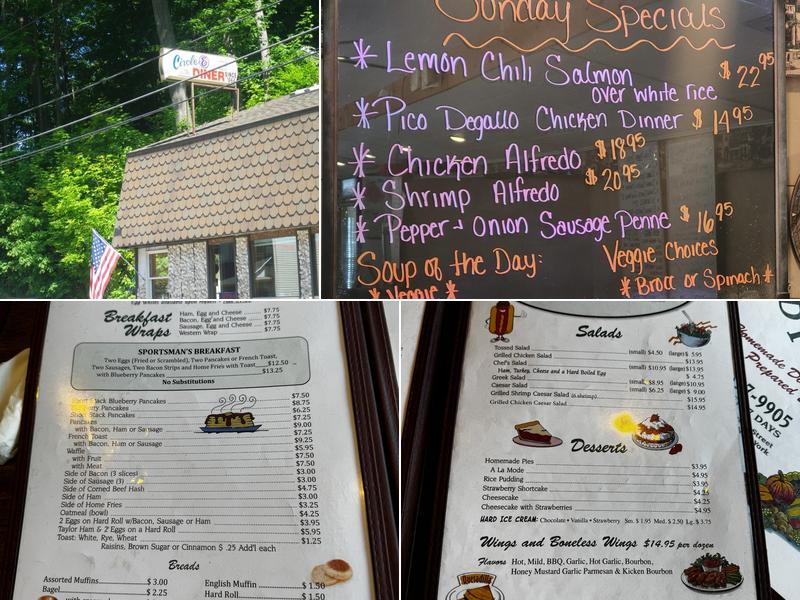 Circle E
DINER
SINCE
Sunday Specials
* Lemon Chili Salmon $22.95
over white rice
* Pico Degallo Chicken Dinner $14.95
* Chicken Alfredo $18.95
* Shrimp Alfredo $20.95
* Pepper & Onion Sausage Penne $16.95
Soup of the Day: Veggie Choices
* Veggie * * Brocc or Spinach *
Breakfast
Wraps
Ham, Egg and Cheese $7.75
Bacon, Egg and Cheese $7.75
Sausage, Egg and Cheese $7.75
Western Wrap $7.75
SPORTSMAN'S BREAKFAST
Two Eggs (Fried or Scrambled), Two Pancakes or French Toast,
Two Sausages, Two Bacon Strips and Home Fries with Toast $12.50
with Blueberry Pancakes $13.25
No Substitutions
Stack Blueberry Pancakes $7.50
Pancakes $8.75
Short Stack Pancakes $6.25
Pancakes $7.25
with Bacon, Ham or Sausage $9.00
French Toast $7.25
with Bacon, Ham or Sausage $9.25
Waffle $5.95
with Fruit $7.50
with Meat $7.50
Side of Bacon (3 slices) $3.00
Side of Sausage (3) $3.00
Side of Corned Beef Hash $4.75
Side of Ham $3.00
Side of Home Fries $3.25
Oatmeal (bowl) $4.25
2 Eggs on Hard Roll w/Bacon, Sausage or Ham $3.95
Taylor Ham & 2 Eggs on a Hard Roll $5.95
Toast: White, Rye, Wheat $1.25
Raisins, Brown Sugar or Cinnamon $ .25 Add'l each
Breads
Assorted Muffins $ 3.00
Bagel $ 2.25
with cream cheese
English Muffin $ 1.50
Hard Roll $ 1.50
Salads
Tossed Salad (small) $4.50 (large) $ 5.95
Grilled Chicken Salad $13.95
Chef's Salad (small) $10.95 (large) $13.95
Ham, Turkey, Cheese and a Hard Boiled Egg $ 4.75
Greek Salad (small) $8.95 (large) $10.95
Caesar Salad (small) $6.25 (large) $ 9.00
Grilled Shrimp Caesar Salad (6 shrimp) $15.95
Grilled Chicken Caesar Salad $14.95
Desserts
Homemade Pies $3.95
A La Mode $4.95
Rice Pudding $3.95
Strawberry Shortcake $4.25
Cheesecake $4.25
Cheesecake with Strawberries $4.95
HARD ICE CREAM: Chocolate • Vanilla • Strawberry Sm. $ 1.95 Med. $ 2.50 Lg. $ 3.75
Wings and Boneless Wings $14.95 per dozen
Flavors Hot, Mild, BBQ, Garlic, Hot Garlic, Bourbon,
Honey Mustard Garlic Parmesan & Kicken Bourbon
Quesadilla
Homemade D
Prepared
7-9905
7 DAYS
Street
Park